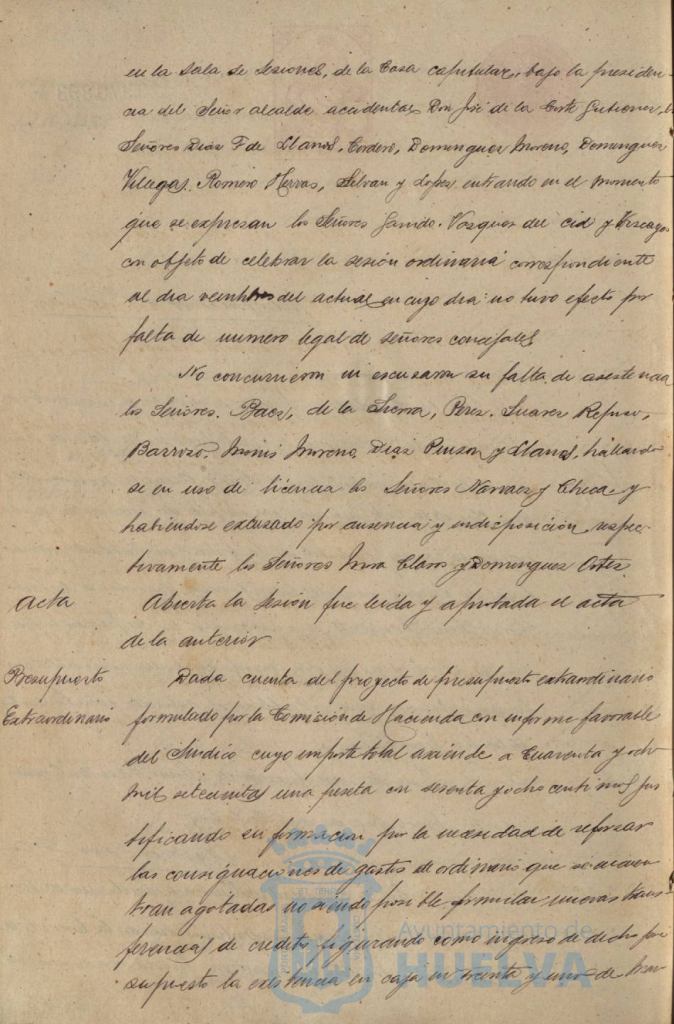 en la Sala de Sesiones, de la Casa capitular, bajo la presiden-
cia del Señor alcalde accidental Don José de la Corte Gutierrez, los
Señores Diaz F de Llanos, Cordero, Dominguez Moreno, Dominguez
Villegas, Romero Hervas, Silvan y Lopez entrando en el momento
que se expresan los Señores Garrido, Vazquez del Cid y Vizcaya
con objeto de celebrar la sesión ordinaria correspondiente
al dia veintitres del actual, en cuyo dia no tuvo efecto por
falta de numero legal de señores concejales
No concurrieron ni escusaron su falta de asistencia
los Señores. Baez, de la Sierra, Perez, Suarez Refuso,
Barroso, Moreno, Diaz Pinzon y Llanos, hallando
se en uso de licencia los Señores Narvaez y Checa y
habiendose excusado por ausencia y indisposición respec-
tivamente los Señores Mora Claros y Dominguez Ortiz
Acta
Abierta la Sesión fue leida y aprobada el acta
de la anterior
Presupuesto
Extraordinario
Dada cuenta del proyecto de presupuesto extraordinario
formulado por la Comisión de Hacienda con informe favorable
del Sindico cuyo importe total asciende a Cuarenta y ocho
mil setecientas una peseta con sesenta y ocho centimos jus
tificando su formacion por la necesidad de reforzar
las consignaciones de gastos del ordinario que se encuen
tran agotadas no siendo posible formular nuevas trans-
ferencias de credito figurando como ingreso de dicho pre
supuesto la existencia en caja en treinta y uno de
Ayuntamiento de
HUELVA